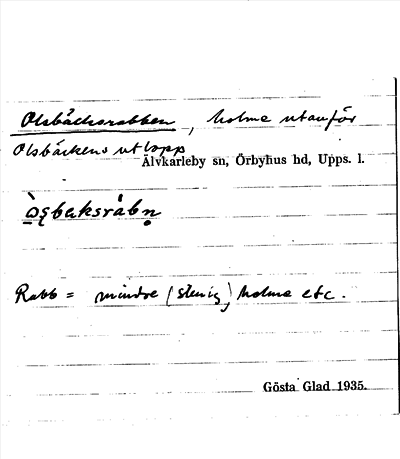 Olsbäcksrabben, holme utanför
Olsbäckens utlopp
Älvkarleby sn, Örbyhus hd, Upps. l.
Rabb = mindre (stenig) holme etc.
Gösta Glad 1935.